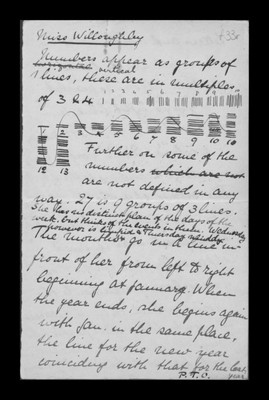 Miss Willoughby
Numbers appear as groups of
horizontal vertical
lines, these are in multiples
of 3 & 4
1 2 3 4 5 6 7 8 9 10
12 13
Further on some of the
numbers which are not
are not defined in any
way. 27 is 9 groups of 3 lines.
She has no distinct plan of the days of the
week. but thinks of the events in them. Wednesday
however is
The months go in a line in
front of her from left to right
beginning at January. When
the year ends, she begins again
with Jan. in the same place,
the line for the new year
coinciding with that for the last
year
P.T.O.